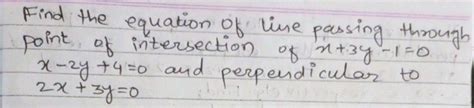 Find the equation of line passing through
point of intersection of x+3y-1=0
x-2y+4=0 and perpendicular to
2x+3y=0